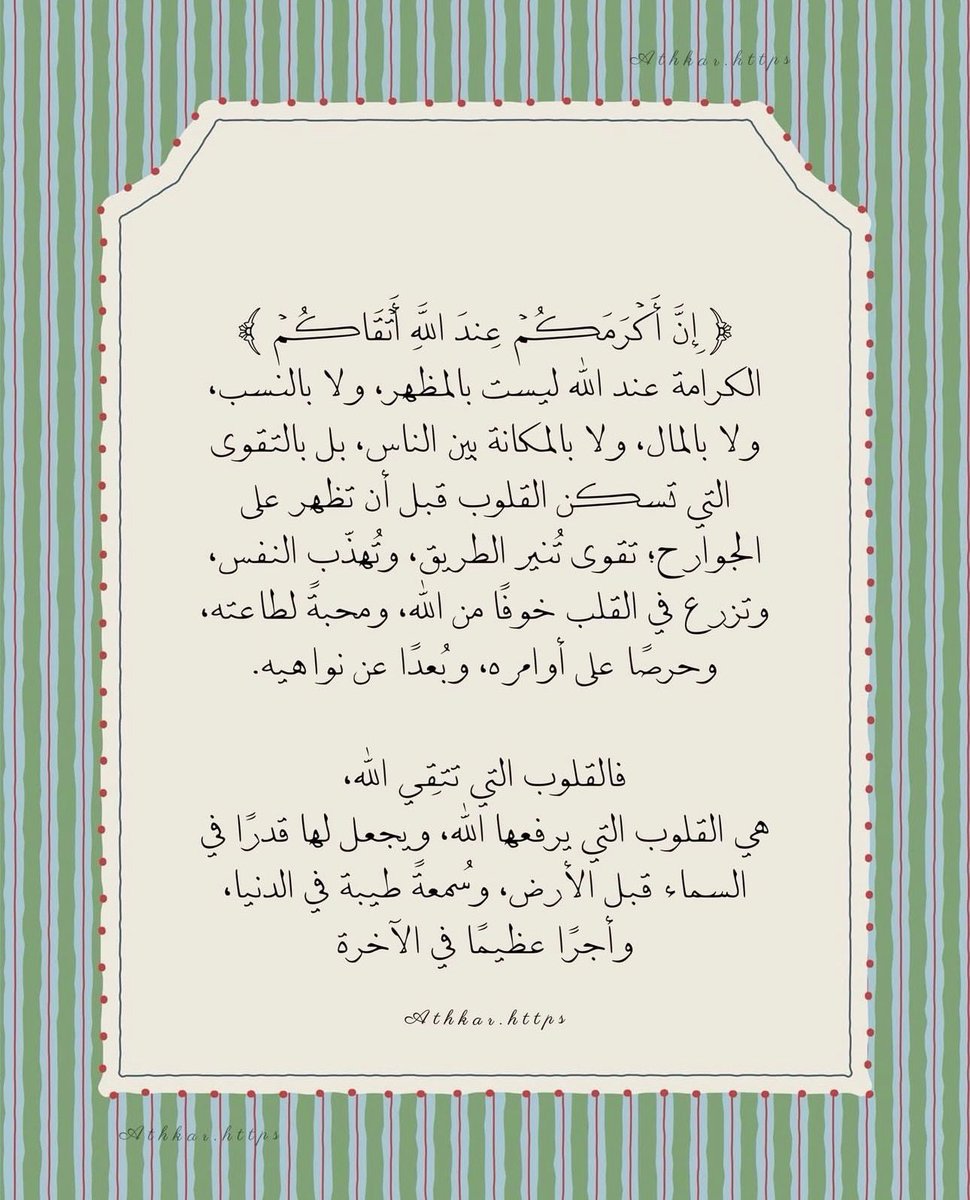 Athkar.https
﴿ إِنَّ أَكْرَمَكُمْ عِندَ اللَّهِ أَتْقَاكُمْ ﴾
الكرامة عند الله ليست بالمظهر، ولا بالنسب،
ولا بالمال، ولا بالمكانة بين الناس، بل بالتقوى
التي تسكن القلوب قبل أن تظهر على
الجوارح؛ تقوى تُنير الطريق، وتُهذّب النفس،
وتزرع في القلب خوفًا من الله، ومحبةً لطاعته،
وحرصًا على أوامره، وبُعدًا عن نواهيه.
فالقلوب التي تتقِي الله،
هي القلوب التي يرفعها الله، ويجعل لها قدرًا في
السماء قبل الأرض، وسُمعةً طيبة في الدنيا،
وأجرًا عظيمًا في الآخرة
Athkar.https
Athkar.https